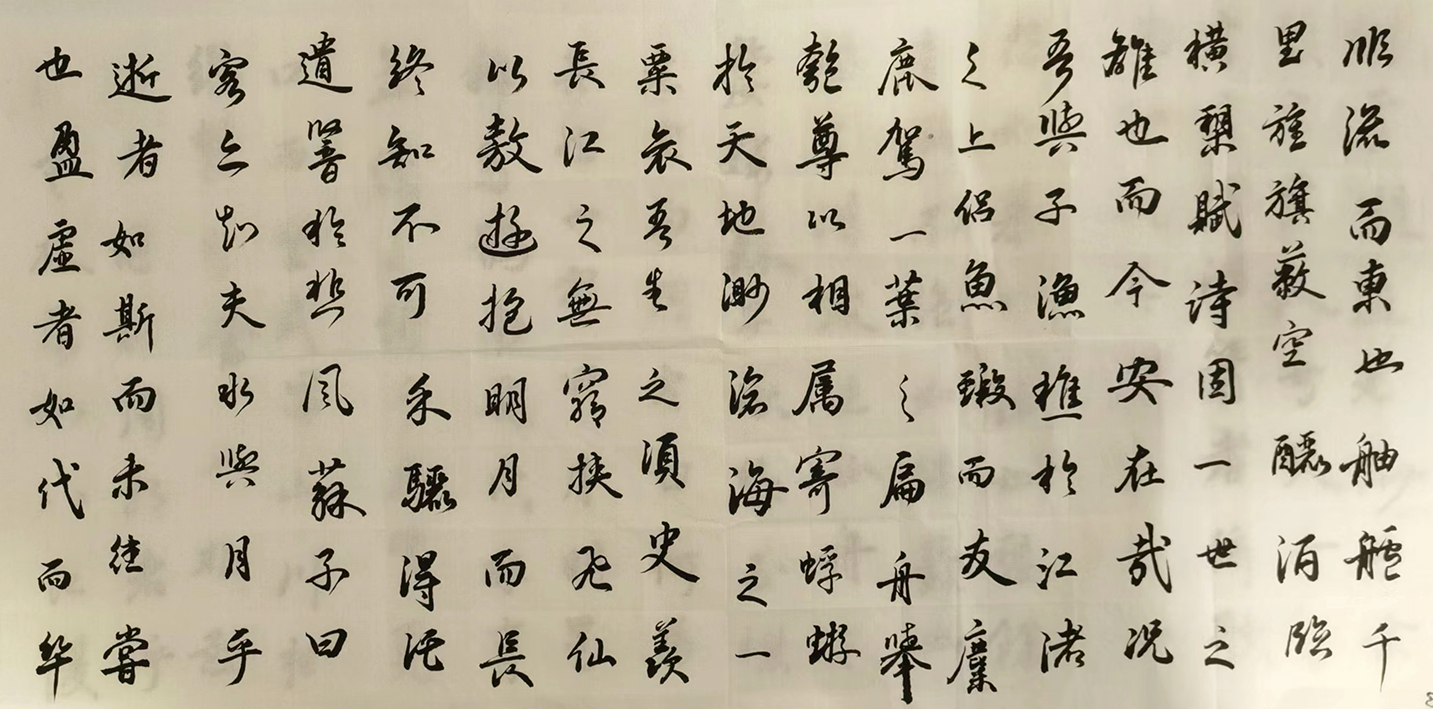 順流而東也舳艫千
里旌旗蔽空釃酒臨
橫槊賦詩固一世之
雄也而今安在哉況
吾與子漁樵於江渚
之上侶魚蝦而友麋
鹿駕一葉之扁舟舉
匏尊以相屬寄蜉蝣
於天地渺滄海之一
粟哀吾生之須臾羨
長江之無窮挾飛仙
以敖遊抱明月而長
終知不可乎驟得託
遺響於悲風蘇子曰
客亦知夫水與月乎
逝者如斯而未往嘗
也盈虛者如代而卒